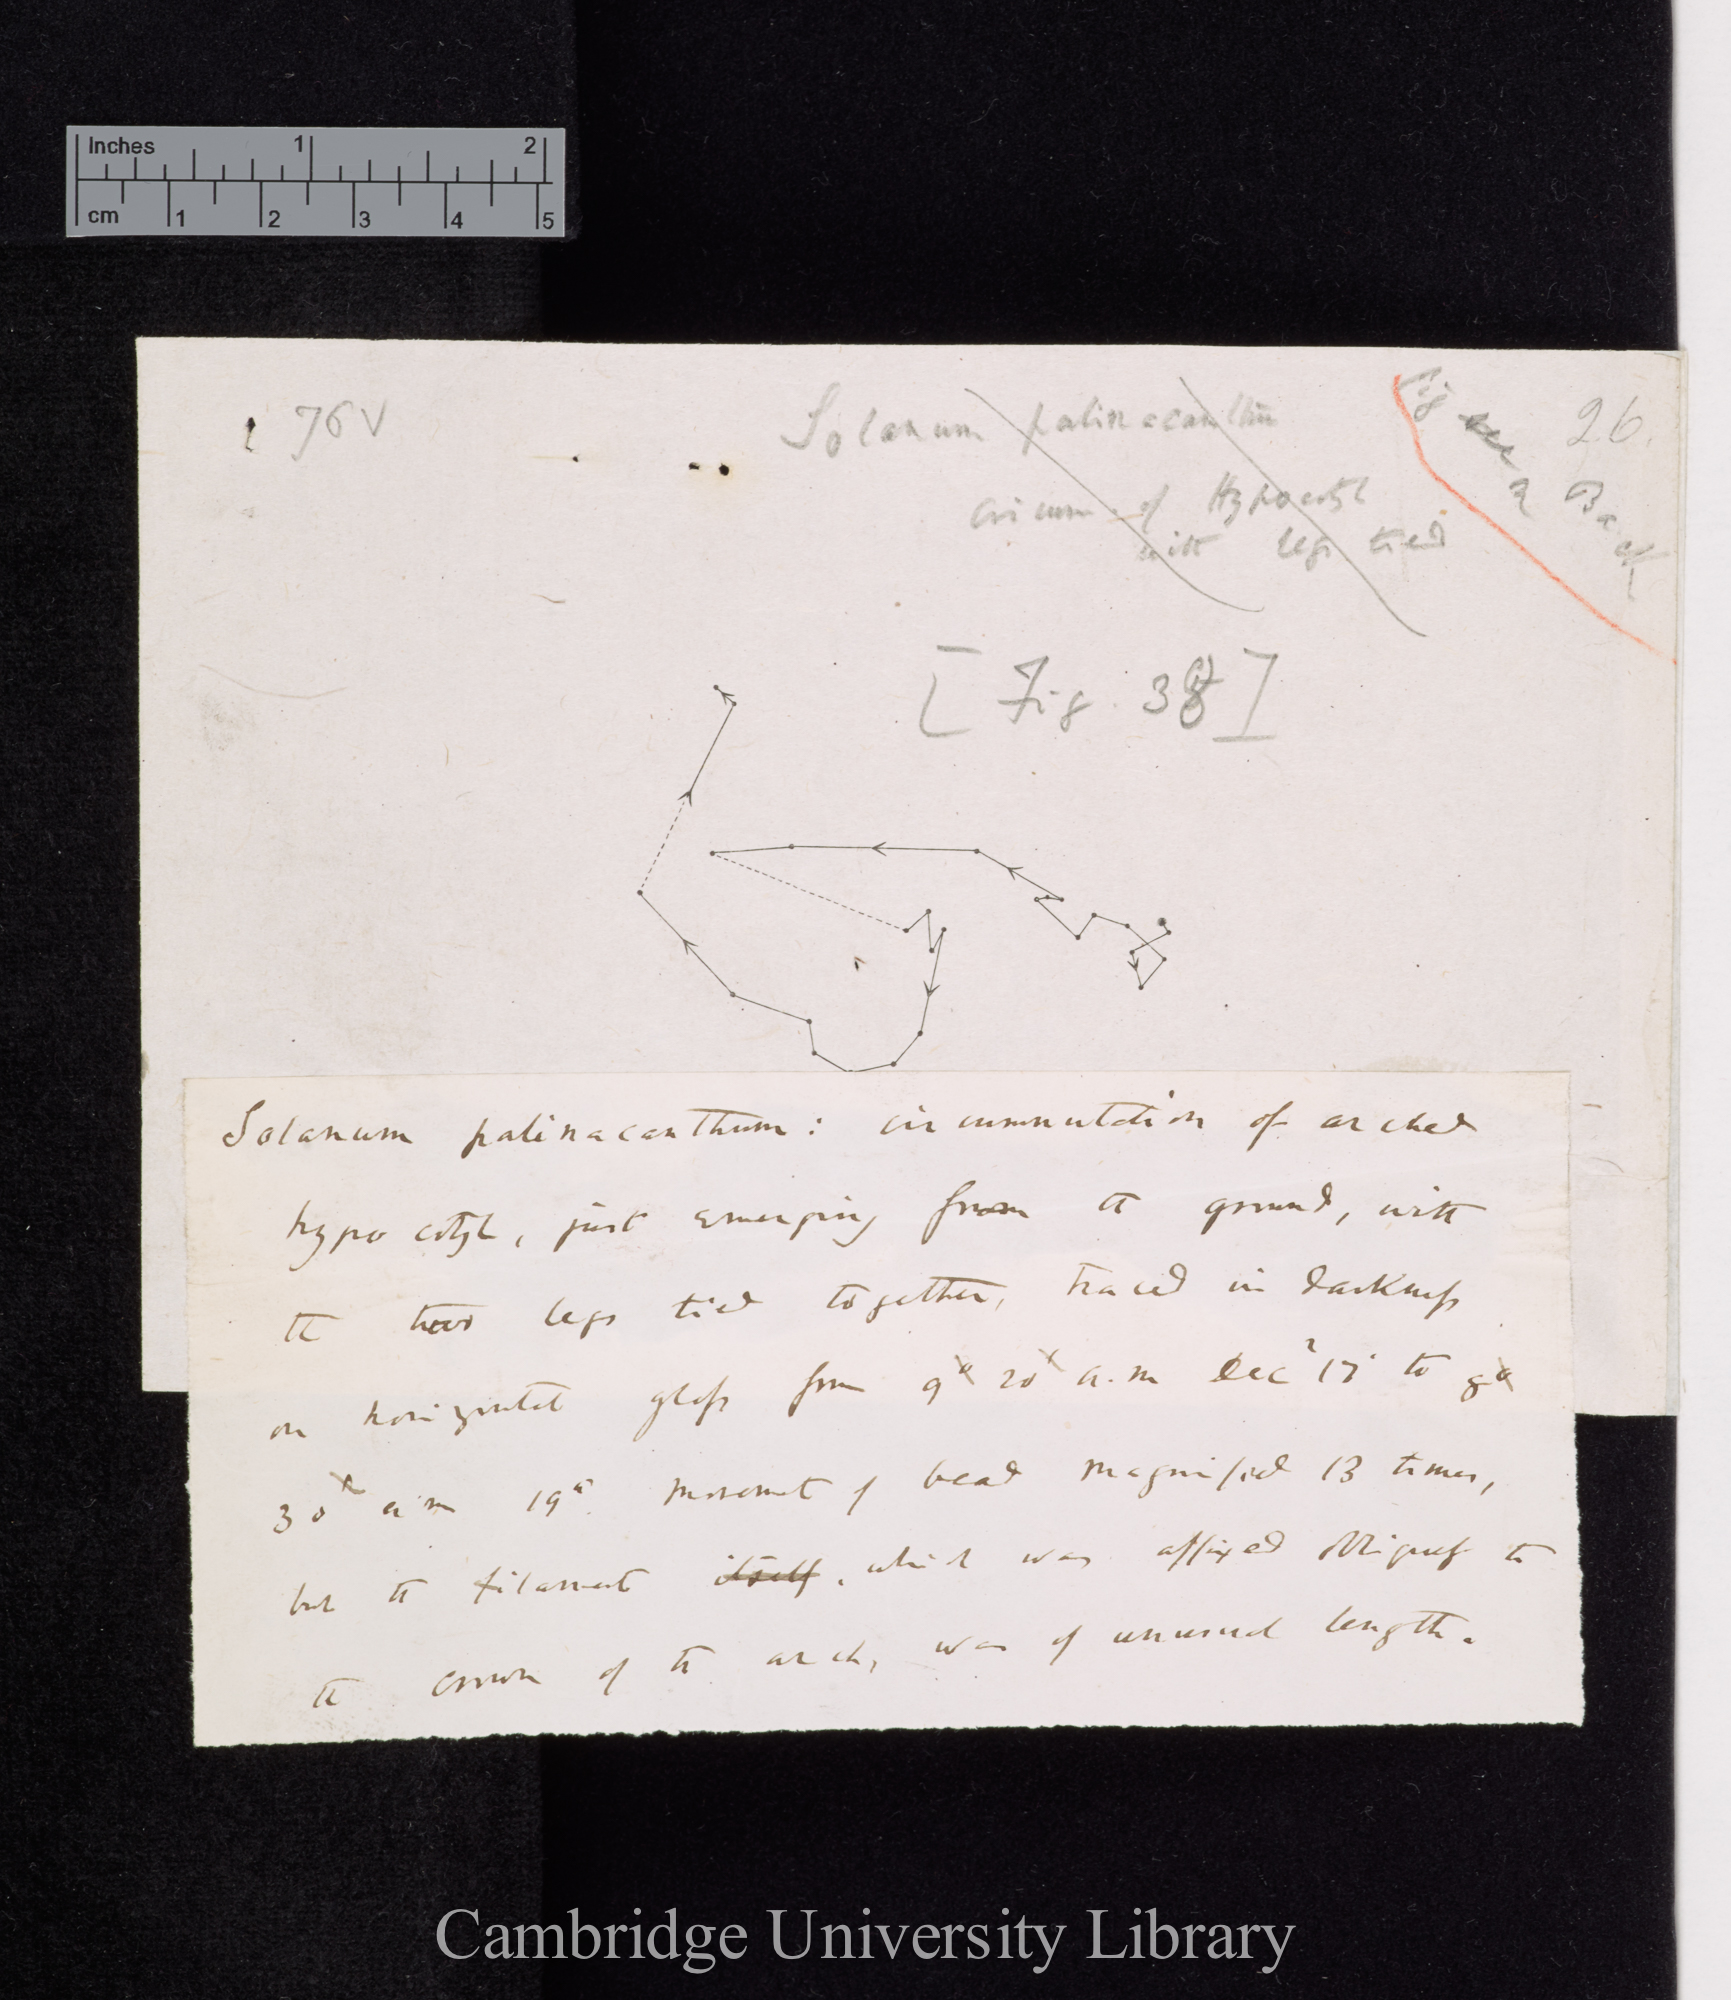 Inches 1 2
cm 1 2 3 4 5
76 V
Solanum palinacanthum
26.
Fig
Back
circum. of Hypocotyl
with legs tied
[Fig. 38]
Solanum palinacanthum: circumnutation of arched
hypocotyl, just emerging from the ground, with
the two legs tied together, traced in darkness
on horizontal glass from 9h 20' a.m Decr 17th to 8h
30' a m 19th. Movement of bead magnified 13 times,
but the filament itself, which was affixed obliquely to
the crown of the arch, was of unusual length.
Cambridge University Library